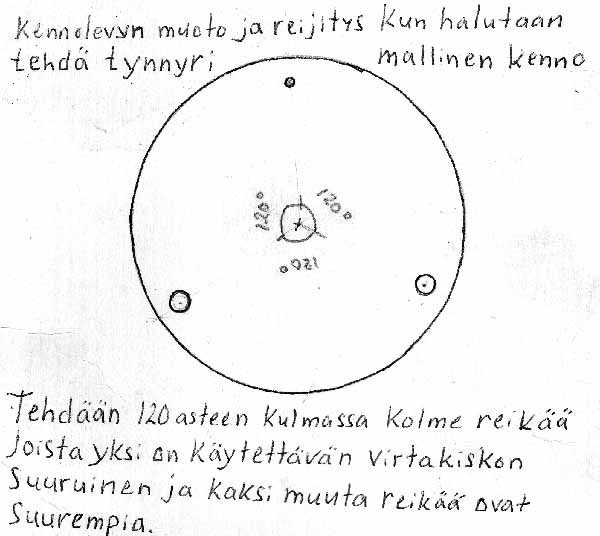 Kennolevyn muoto ja reijitys kun halutaan
tehdä tynnyri mallinen kenno
120°
120°
120°
Tehdään 120 asteen kulmassa kolme reikää
joista yksi on käytettävän virtakiskon
suuruinen ja kaksi muuta reikää ovat
suurempia.